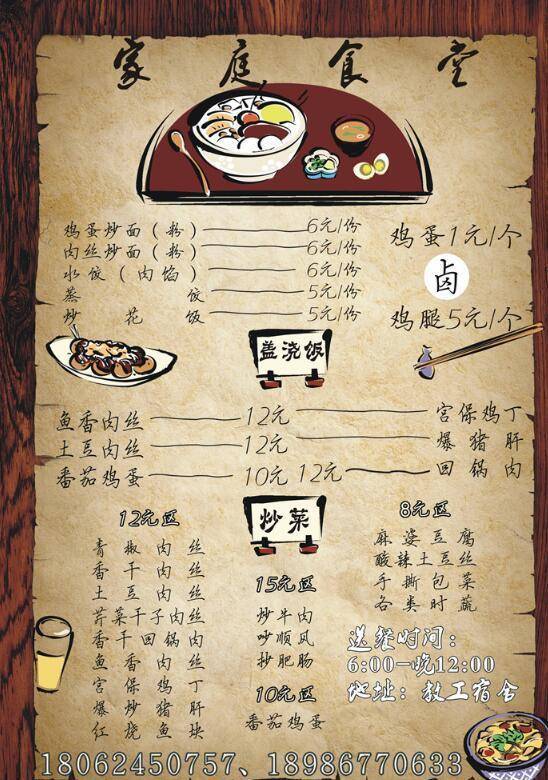 家庭食堂
鸡蛋炒面(粉) 6元/份
肉丝炒面(粉) 6元/份
水饺(肉馅) 6元/份
蒸饺 5元/份
炒花饭 5元/份
鸡蛋1元/个
卤
鸡腿5元/个
盖浇饭
鱼香肉丝 12元 宫保鸡丁
土豆肉丝 12元 爆猪肝
番茄鸡蛋 10元 12元 回锅肉
炒菜
12元区
青椒肉丝
香干肉丝
土豆肉丝
芹菜干子肉丝
香干回锅肉
鱼香肉丝
宫保鸡丁
爆炒猪肝
红烧鱼块
15元区
炒牛肉
吵顺风
抄肥肠
10元区
番茄鸡蛋
8元区
麻婆豆腐
酸辣土豆丝
手撕包菜
各类时蔬
送餐时间：
6:00-晚12:00
地址：教工宿舍
18062450757、18986770633